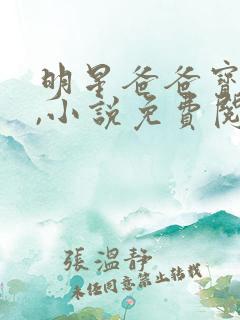 明星爸爸寶
小說免費閱
張溫靜
未經同意禁止轉載